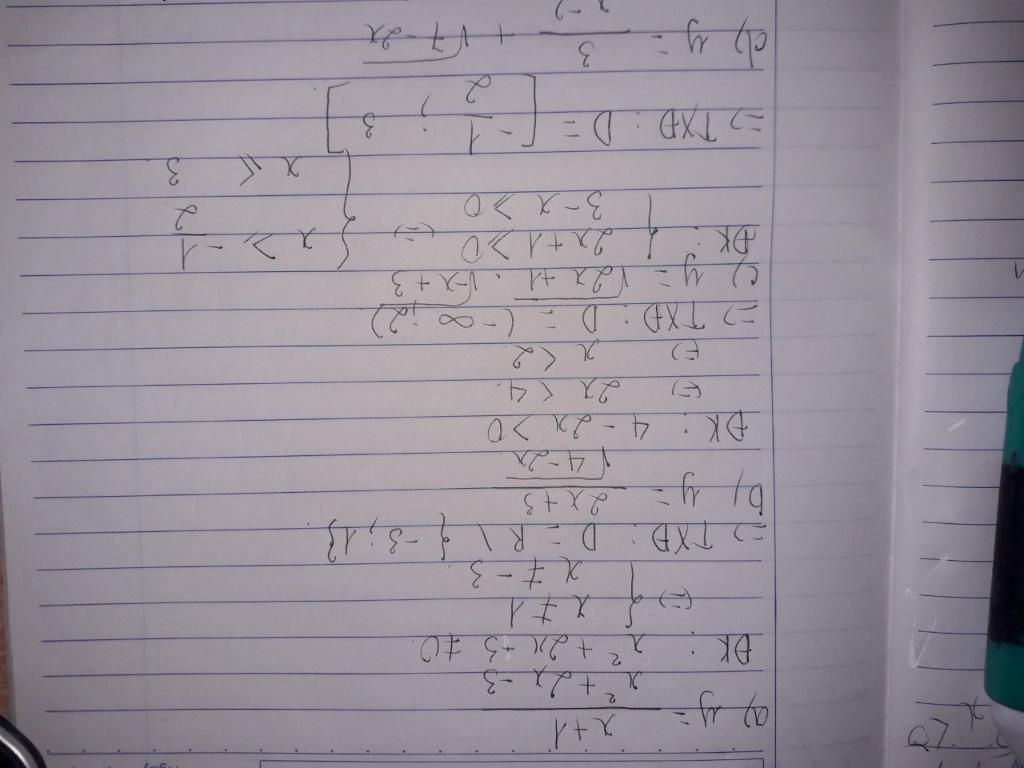 a) y = (x + 1)/(x² + 2x - 3)
ĐK : x² + 2x + 3 ≠ 0
(=) { x ≠ 1
x ≠ - 3
=> TXĐ : D = R \ { -3 ; 1}
b) y = (2x + 3)/(√4 - 2x)
ĐK : 4 - 2x > 0
(=) 2x < 4
(=) x < 2
=> TXĐ : D = (-∞ ; 2)
c) y = √2x + 1 . √-x + 3
ĐK : { 2x + 1 ⩾ 0 (=) { x ⩾ -1/2
3 - x ⩾ 0
x ⩽ 3
=> TXĐ : D = [ -1/2 ; 3 ]
d) y = 3/(x - 2) + √7 - 2x
x < 0